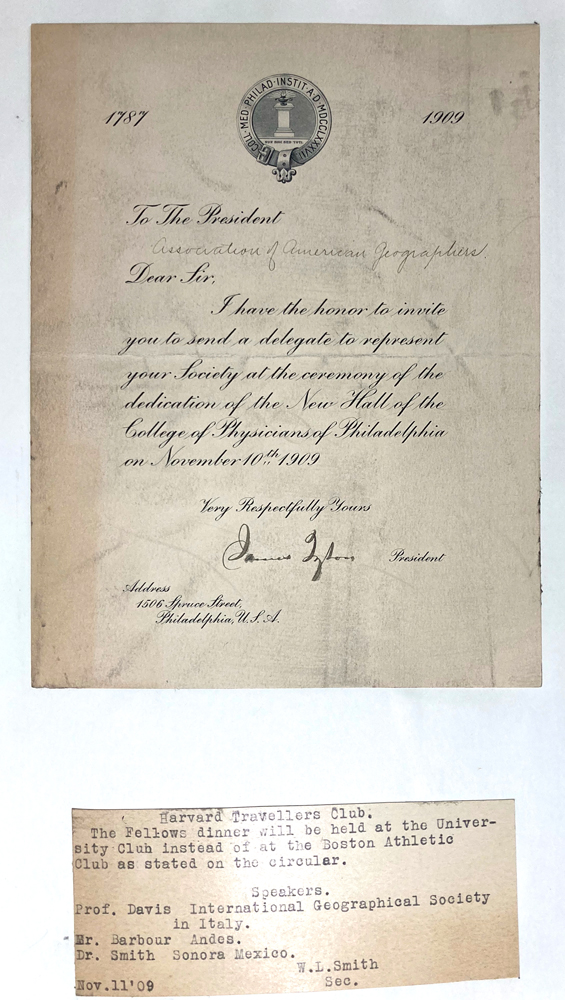 1787
COLL·MED·PHILAD·INSTIT·A·D·MDCCLXXXVII
NON SIBI SED TOTI
1909
To The President
Association of American Geographers.
Dear Sir,
I have the honor to invite
you to send a delegate to represent
your Society at the ceremony of the
dedication of the New Hall of the
College of Physicians of Philadelphia
on November 10th 1909
Very Respectfully Yours
James Tyson President
Address
1506 Spruce Street,
Philadelphia, U.S.A.
Harvard Travellers Club.
The Fellows dinner will be held at the Univer-
sity Club instead of at the Boston Athletic
Club as stated on the circular.
Speakers.
Prof. Davis International Geographical Society
in Italy.
Mr. Barbour Andes.
Dr. Smith Sonora Mexico.
W.L.Smith
Nov.11'09 Sec.